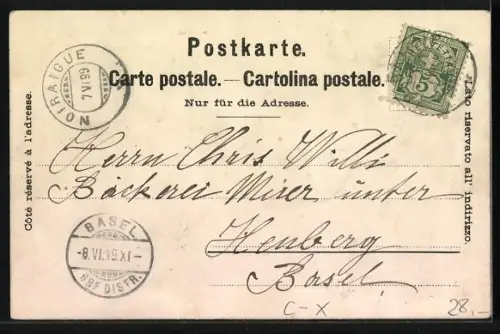 Postkarte.
Carte postale. — Cartolina postale.
Nur für die Adresse.
Côté réservé à l'adresse.
Lato riservato all' indirizzo.
NOIRAIGUE
7 VI 99
5
Herrn Chris Willi
Bäckerei unter
Heuberg
Basel
BASEL
-8.VI.99.XI-
BRF. DISTR.
C-X
28,-